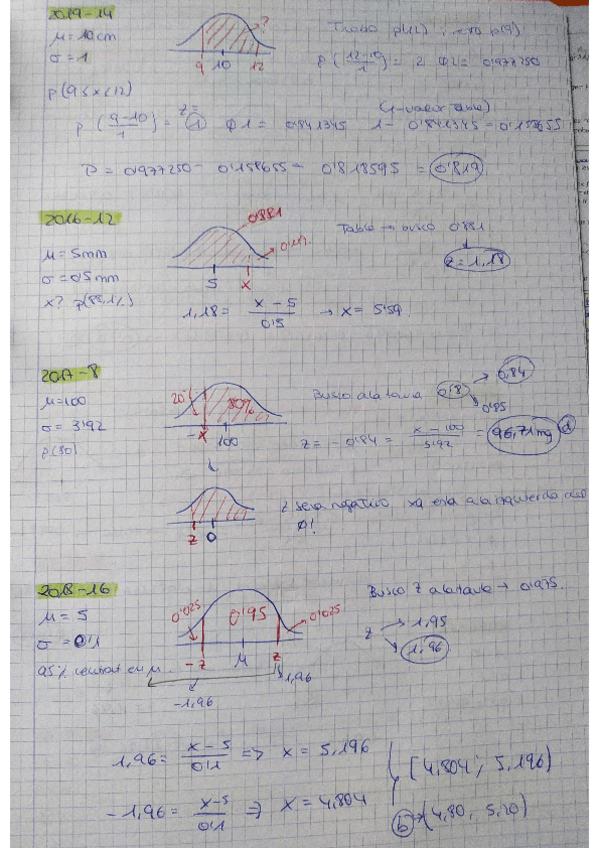 2019-14
μ = 10 cm
σ = 1
?
9 10 12
p(9≤x<12)
p(12-10/1) = 2 φ2 = 0'977250
(1-valor tabla)
p(9-10/1) = z= 1 φ1 = 0'841345 1 - 0'841345 = 0'158655
P = 0'977250 - 0'158655 = 0'818595 = 0'819
2016-12
μ = 5mm
σ = 0'5mm
x? p(88,1%)
0'881
5 x
Tabla → busco 0'881
z = 1,18
1,18 = x - 5 / 0'5 → x = 5'59
2017-8
μ = 100
σ = 3'92
p(80)
20% 80%
-x 100
Busco a la tabla 0,8 → 0,84
0'85
z = -0'84 = x - 100 / 3'92 = 96,71 mg d
z 0
z sera negativo, xq esta a la izquierda del
0!
2018-16
μ = 5
σ = 0'1
95% centrat en μ
0'025 0'95 0'025
-z μ z
-1,96 1,96
Busco z a la taula → 0'975
z → 1,95
1,96
1,96 = x - 5 / 0'1 => x = 5,196
-1,96 = x-5 / 0'1 => x = 4,804
[4,804 ; 5,196)
b → (4,80, 5,20)